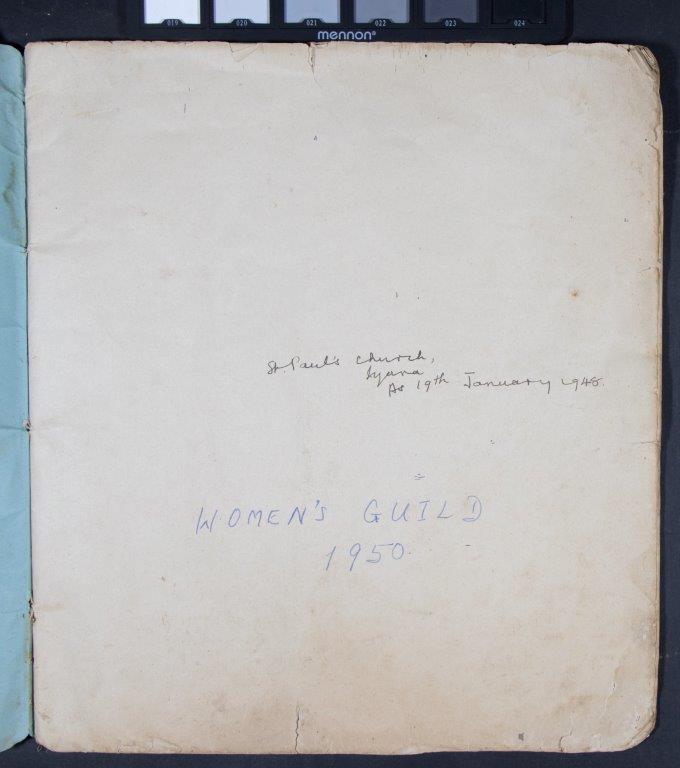 019 020 021 022 023 024
mennon®
St. Paul's Church,
Iyara
As 19th January 1948.
WOMEN'S GUILD
1950.